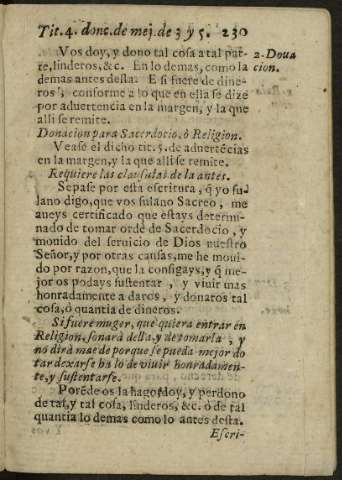 Tit.4. donc.de mej.de 3 y 5. 230
Vos doy, y dono tal cosa a tal par-
te, linderos, &c. En lo demas, como la
demas antes desta. E si fuere de dine-
ros, conforme a lo que en ella se dize
por aduertencia en la margen, y la que
alli se remite.
2. Dona
cion.
Donacion para Sacerdocio, ò Religion.
Vease el dicho tit. 5. de aduertẽcias
en la margen, y la que alli se remite.
Requiere las clausulas de la antes.
Sepase por esta escritura, q̃ yo fu-
lano digo, que vos fulano Sacreo, me
aueys certificado que estays determi-
nado de tomar ordẽ de Sacerdocio, y
mouido del seruicio de Dios nuestro
Señor, y por otras causas, me he moui-
do por razon, que la consigays, y q̃ me-
jor os podays sustentar, y viuir mas
honradamente a daros, y donaros tal
cosa, ò quantia de dineros.
Si fuere muger, que quiera entrar en
Religion, sonarà della, y de tomarla, y
no dirà mae de porque se pueda mejor do
tar de xarse ha lo de viuir honradamen-
te, y sustentarse.
Porẽde os la hago, doy, y perdono
de tal, y tal cosa, linderos, &c. ò de tal
quantia lo demas como lo antes desta.
Escri-